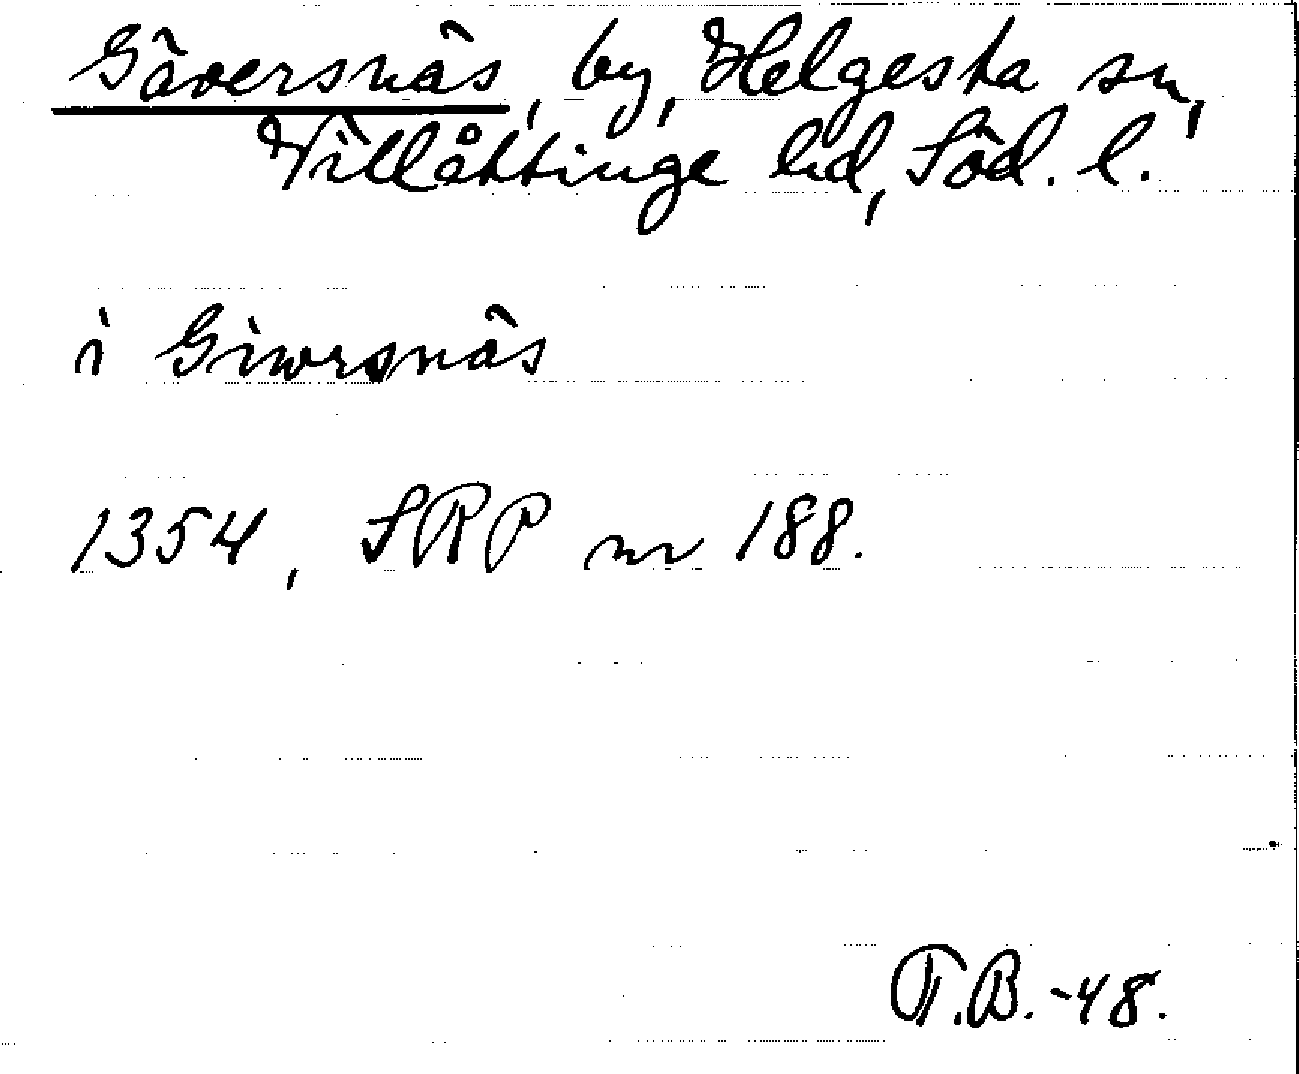 Gäversnäs, by, Helgesta sn,
Villåttinge hd, Söd. l.
i Giwersnäs
1354, SRP nr 188.
T.B. -48.